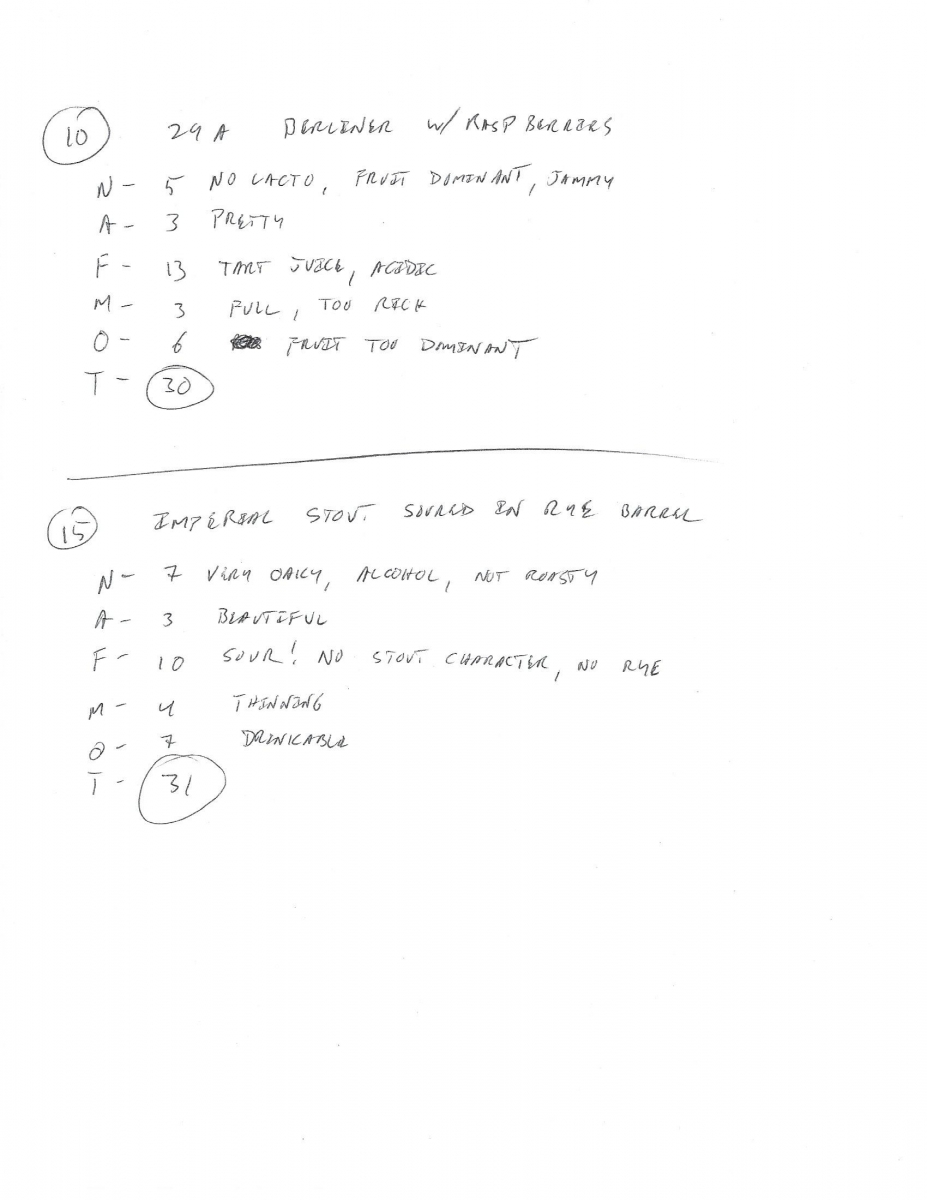 10 29A BERLINER W/ RASPBERRIES
N - 5 NO LACTO, FRUIT DOMINANT, JAMMY
A - 3 PRETTY
F - 13 TART JUICE, ACIDIC
M - 3 FULL, TOO RICH
O - 6 FRUIT TOO DOMINANT
T - 30
15 IMPERIAL STOUT SOURED IN RYE BARREL
N - 7 VERY OAKY, ALCOHOL, NOT ROASTY
A - 3 BEAUTIFUL
F - 10 SOUR! NO STOUT CHARACTER, NO RYE
M - 4 THINNING
O - 7 DRINKABLE
T - 31